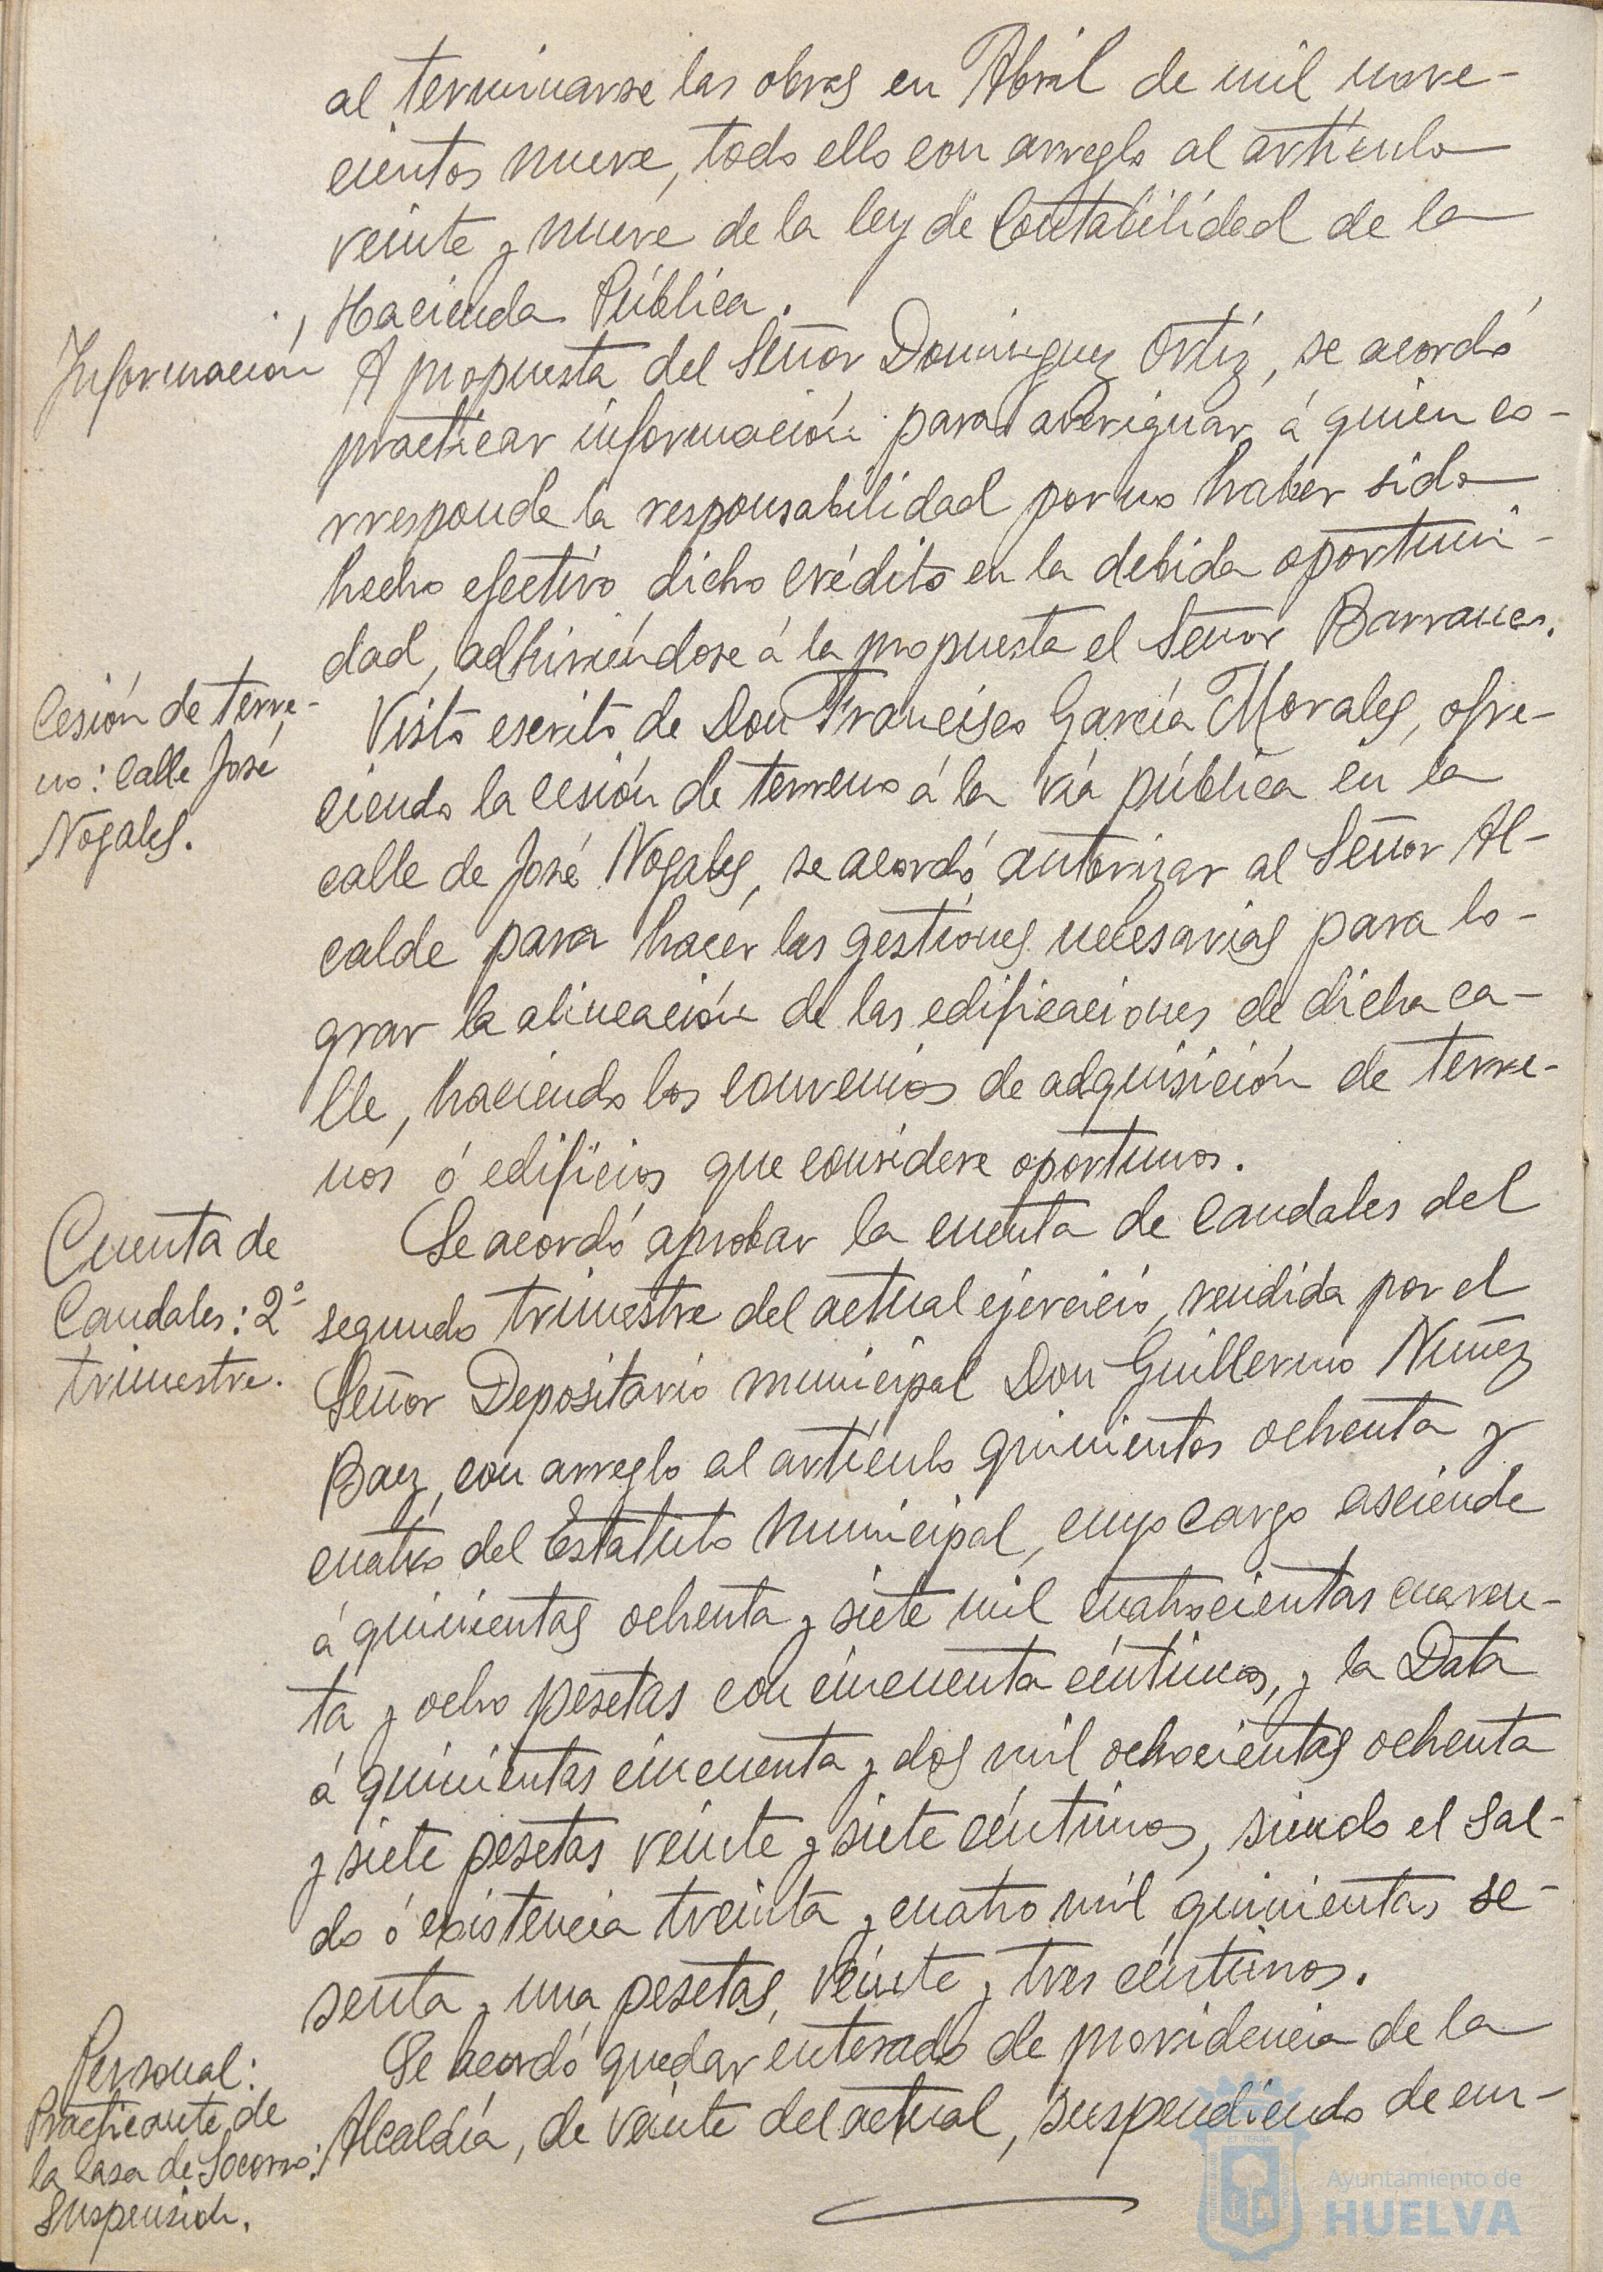 al terminarse las obras en Abril de mil nove-
cientos nueve, todo ello con arreglo al artículo
veinte y nueve de la ley de Contabilidad de la
Hacienda Pública.
Información
A propuesta del Señor Dominguez Ortiz, se acordó
practicar información para averiguar á quien co-
rresponde la responsabilidad por no haber sido
hecho efectivo dicho crédito en la debida oportuni-
dad, adhiriéndose á la propuesta el Señor Barranco.
Cesión de terre-
no: Calle José
Nogales.
Visto escrito de Don Francisco García Morales, ofre-
ciendo la cesión de terreno á la vía pública en la
calle de José Nogales, se acordó autorizar al Señor Al-
calde para hacer las gestiones necesarias para lo-
grar la alineación de las edificaciones de dicha ca-
lle, haciendo los convenios de adquisición de terre-
nos ó edificios que considere oportunos.
Cuenta de
Caudales: 2º
trimestre.
Se acordó aprobar la cuenta de caudales del
segundo trimestre del actual ejercicio, rendida por el
Señor Depositario municipal Don Guillermo Nuñez
Baez, con arreglo al artículo quinientos ochenta y
cuatro del Estatuto Municipal, cuyo cargo asciende
á quinientas ochenta y siete mil cuatrocientas cuaren-
ta y ocho pesetas con cincuenta céntimos, y la Data
á quinientas cincuenta y dos mil ochocientas ochenta
y siete pesetas veinte y siete céntimos, siendo el Sal-
do ó existencia treinta y cuatro mil quinientas se-
senta y una pesetas, veinte y tres céntimos.
Personal:
Practicante de
la Casa de Socorro:
Suspensión.
Se acordó quedar enterado de providencia de la
Alcaldía, de veinte del actual, suspendiendo de em-
Ayuntamiento de
HUELVA